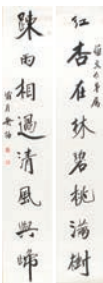 红杏在林碧桃滿樹
陳雨相過清風與歸